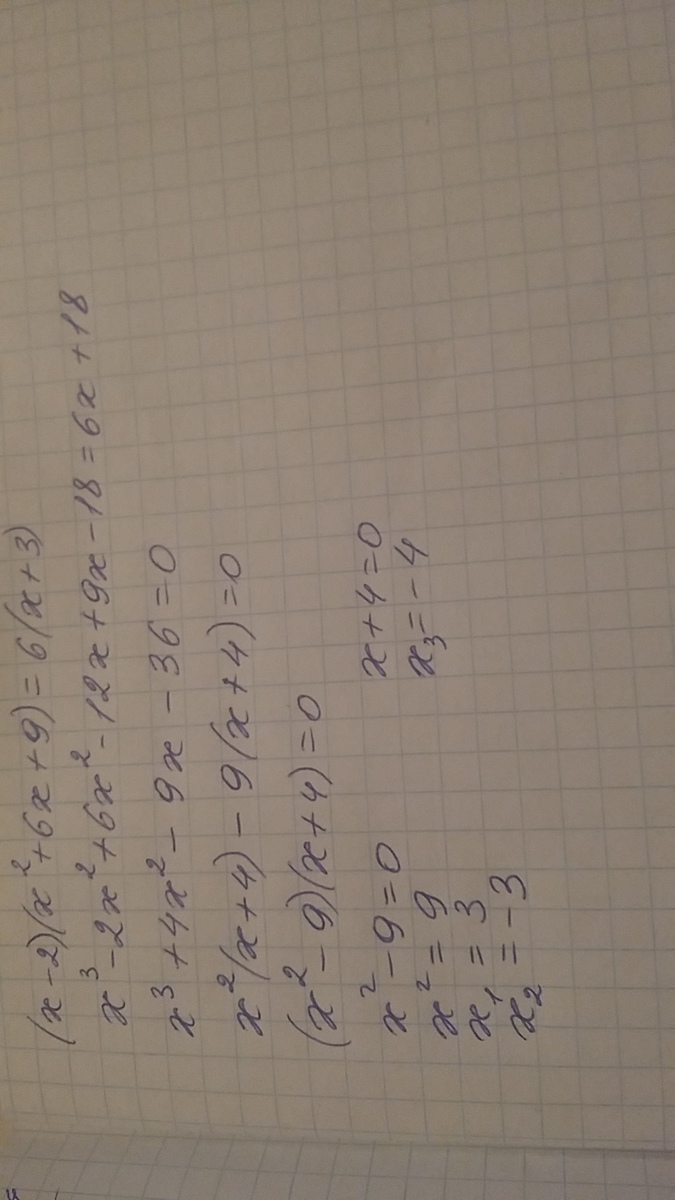 (x-2)(x²+6x+9)=6(x+3)
x³-2x²+6x²-12x+9x-18=6x+18
x³+4x²-9x-36=0
x²(x+4)-9(x+4)=0
(x²-9)(x+4)=0
x²-9=0 x+4=0
x²=9 x₃=-4
x₁=3
x₂=-3